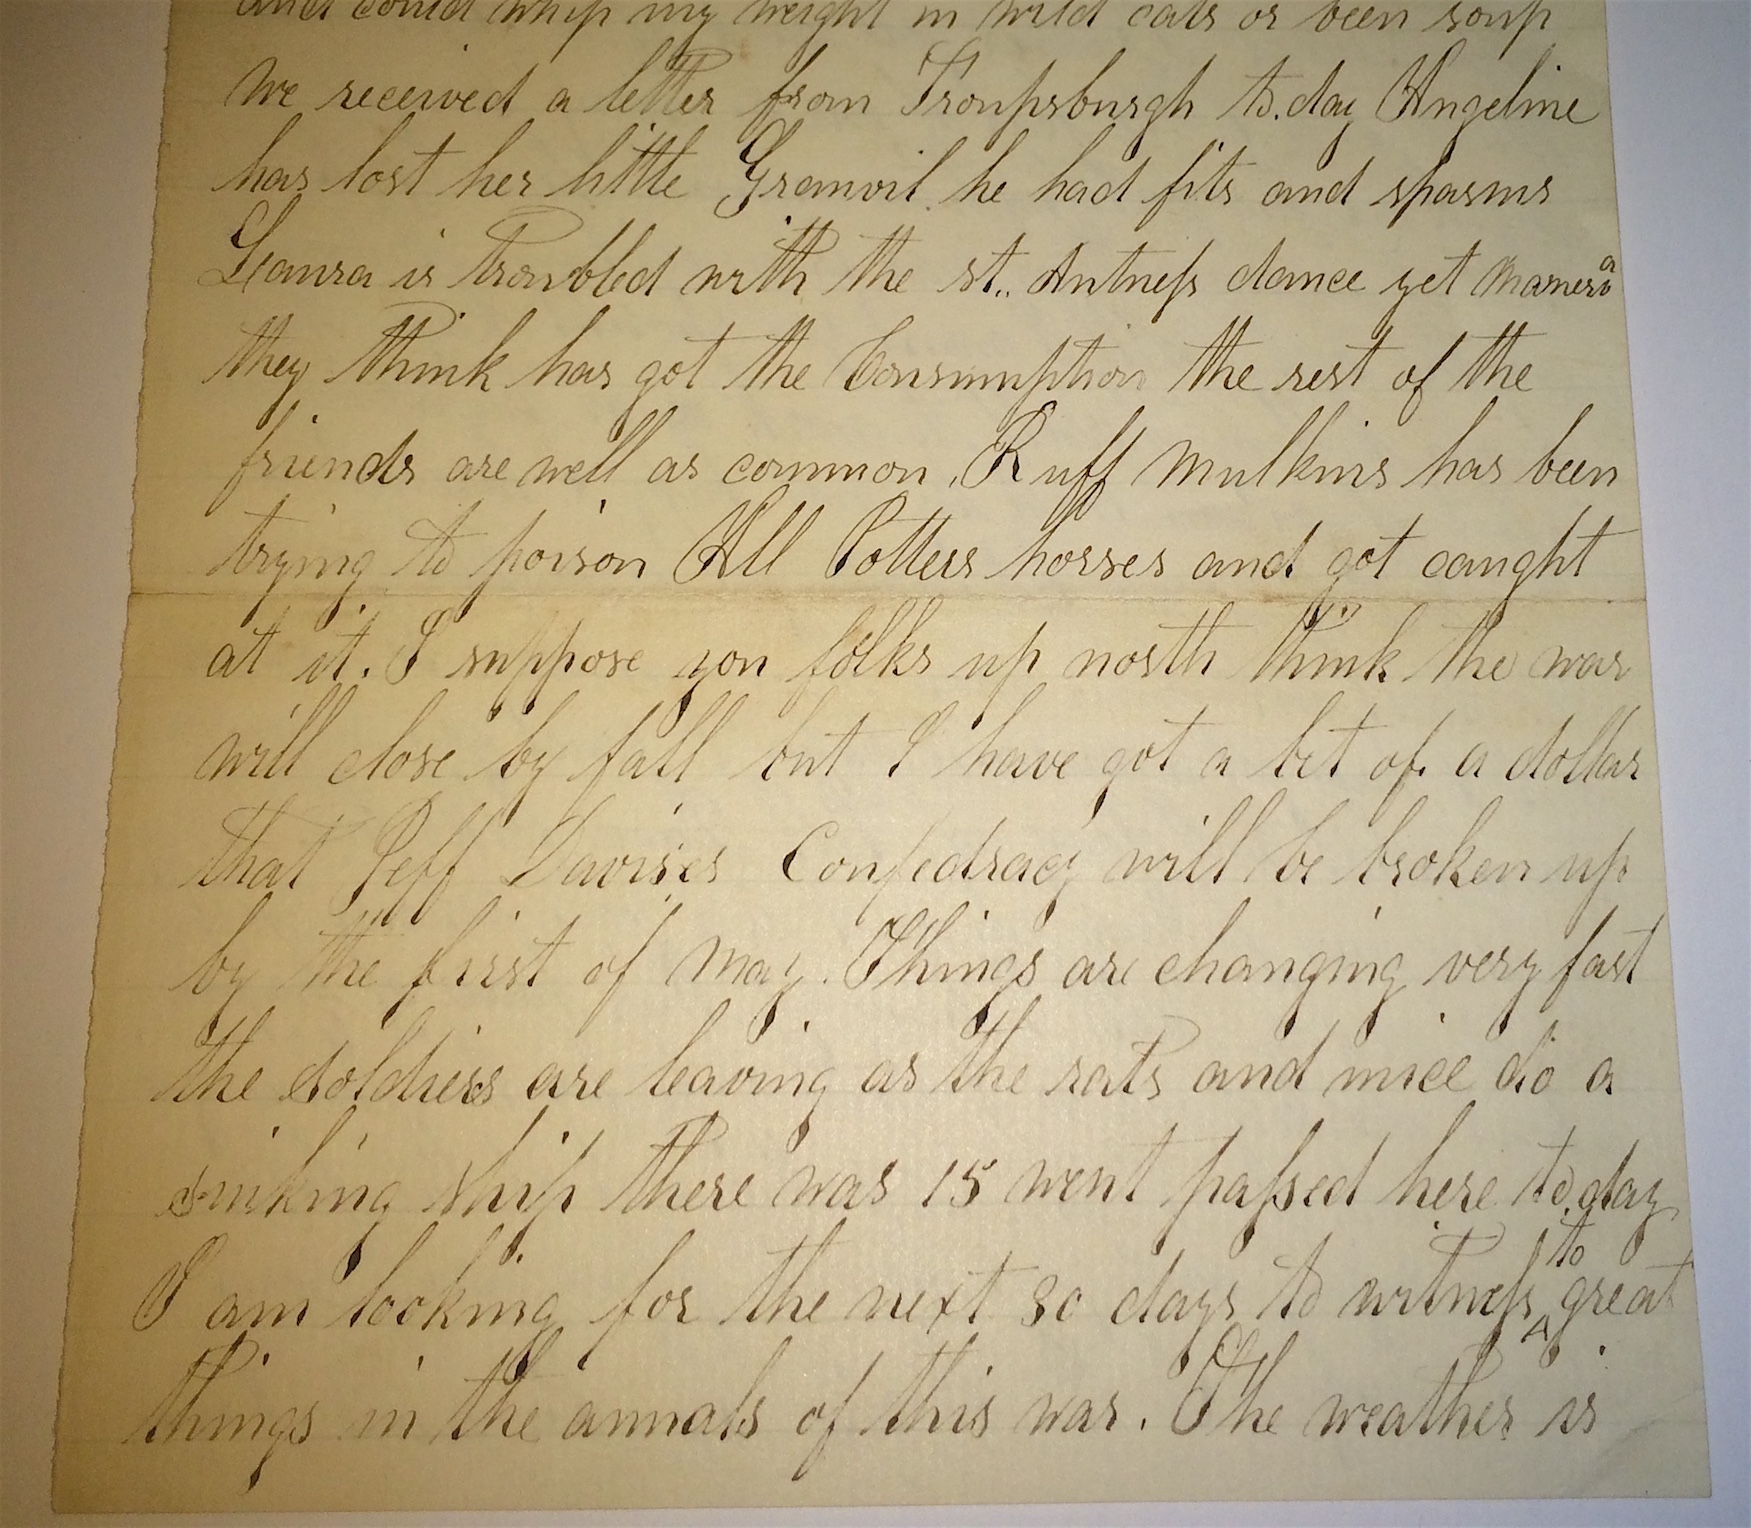 and could whip my weight in wild cats or been soup
We received a letter from Troupsburgh to.day Angeline
has lost her little Granvil he had fits and spasms
Leaura is troubled with the st. Antness dance yet
they think has got the Consumption the rest of the
friends are well as common, Ruff Mulkins has been
trying to poison All Potters horses and got caught
at it. I suppose you folks up north think the war
will close by fall but I have got a bet of a dollar
that Jeff Davises Confedracy will be broken up
by the first of May. Things are changing very fast
the soldiers are leaving as the rats and mice do a
sinking ship there was 15 went passed here to.day
I am looking for the next 30 days to witness to great
things in the annals of this war. The weather is